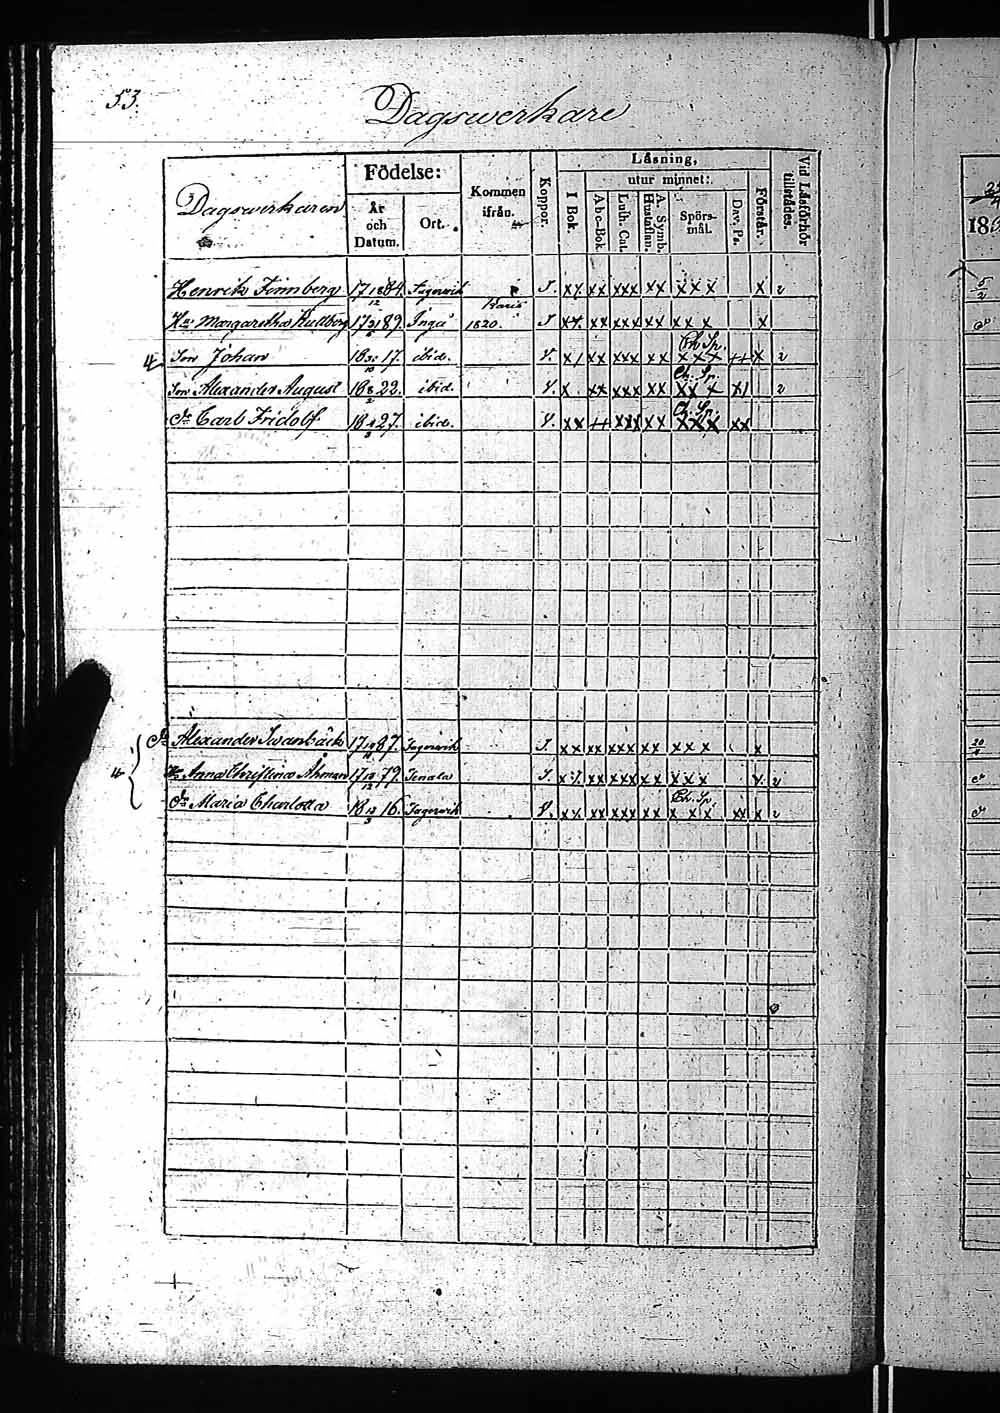 53.
Dagswerkare
Dagswerkaren
Födelse:
År och Datum.
Ort.
Kommen ifrån.
Koppor.
Läsning,
I Bok.
utur minnet:
Abc-Bok.
Luth. Cat.
A. Symb. Hustaflan.
Spörs-mål.
Dav. Ps.
Förstår.
Vid Läsförhör tillstädes.
Henrik Finnberg 17 18/12 84. Fagervik J. x x x x x x x x x x x x x 2
Hu Margaretha Kullberg 1789. Ingå Karis 1820. J x x x x x x x x x x x x x
4 Son Johan 18 30/10 17. ibid. V. x x x x x x x x Ch. Sp. x x x x 2
Son Alexander August 18 8/2 22. ibid. V. x x x x x x x x Ch. Sp. x x x x 2
Dº Carl Fridolf 18 4/3 27. ibid. V. x x x x x x x x Ch. Sp. x x x x x
4 Alexander Swanbäck 1787. Fagervik J. x x x x x x x x x x x x x
Hu Anna Christina Åhman 17 12 79. Tenala J. x x x x x x x x x x x x 2
Dr Maria Charlotta 18 12/3 16. Fagervik V. x x x x x x x x x Ch. Sp. x x x x x x 2
18
5/2
20/4